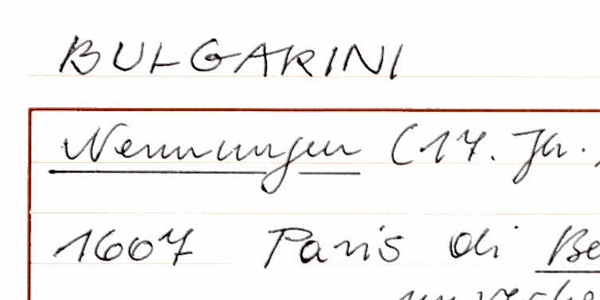 BULGARINI
Nennungen (17. Jh.)
1607 Paris di Be